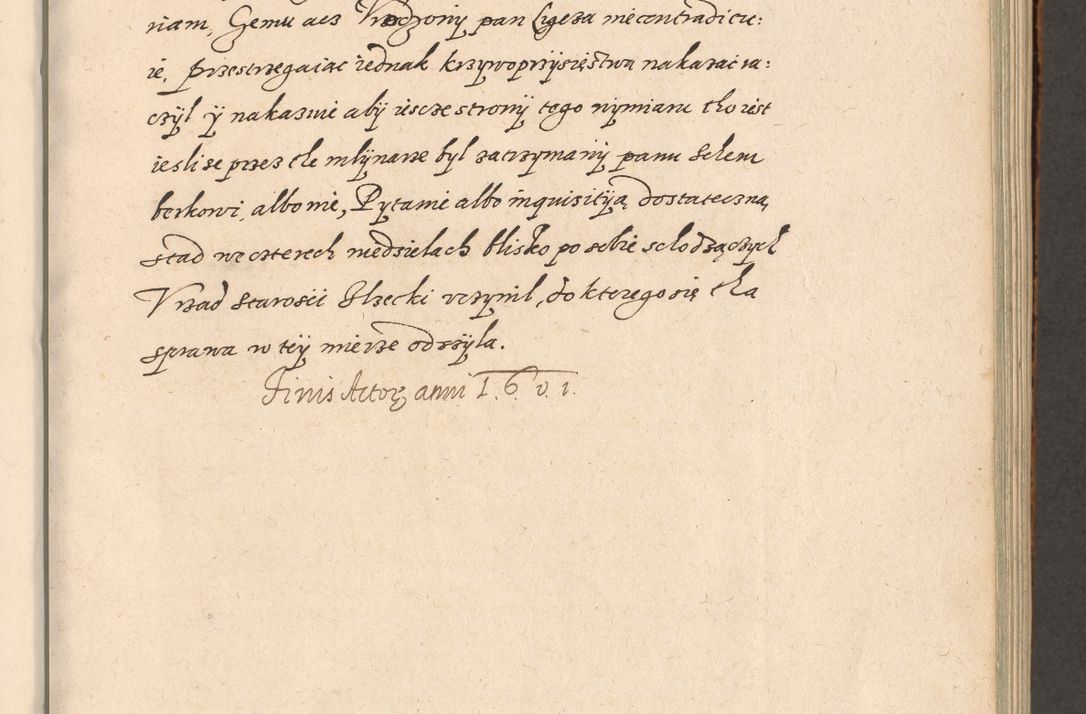 niam, Czemu acz Vrodzony pan Ligęza niecontradicu:
ie, przestrzegaiąc iednak krzywoprzysięstwa nakazać ra:
czÿl ÿ nakazuie abÿ iescze stronÿ tego wymiaru tho iest
iesli se przez the mlÿnarze bÿl zatrzymanÿ panu Schem
berkowi, albo nie, Pytanie albo inquisitiją dostateczną
stąd we czterech niedzielach blisko po sobie schodzączÿch
Vrząd Starosti Ilzecki vczynil, do ktorego się tha
sprawa w teÿ mierze odezÿla.
Finis Actor̨ anni 1.6.0.1.